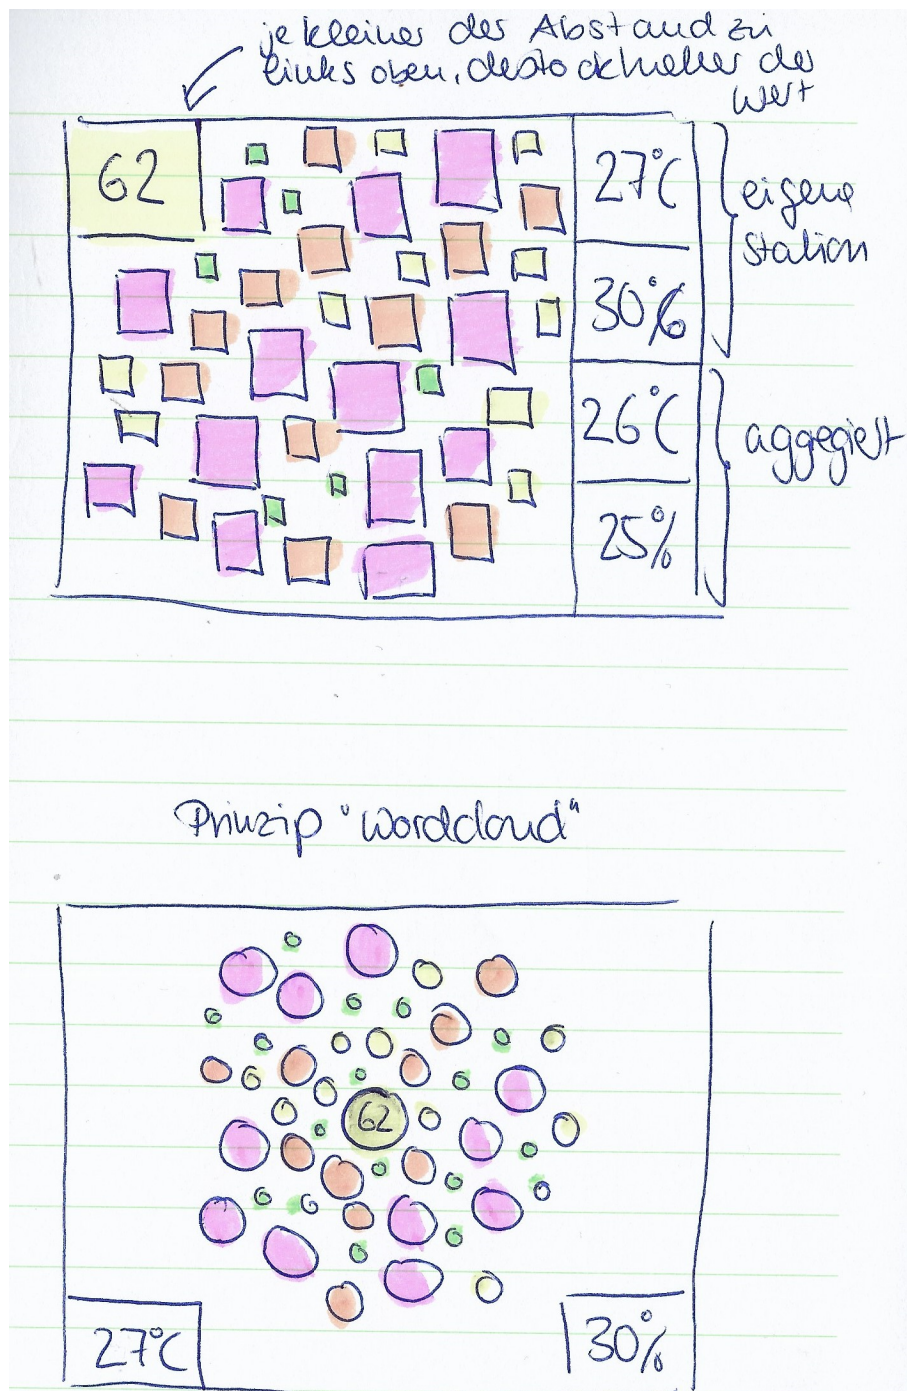 je kleiner der Abstand zu
links oben, desto aktueller der
Wert
62
27°C
30%
eigene
Station
26°C
25%
aggregiert
Prinzip "Wordcloud"
62
27°C
30%